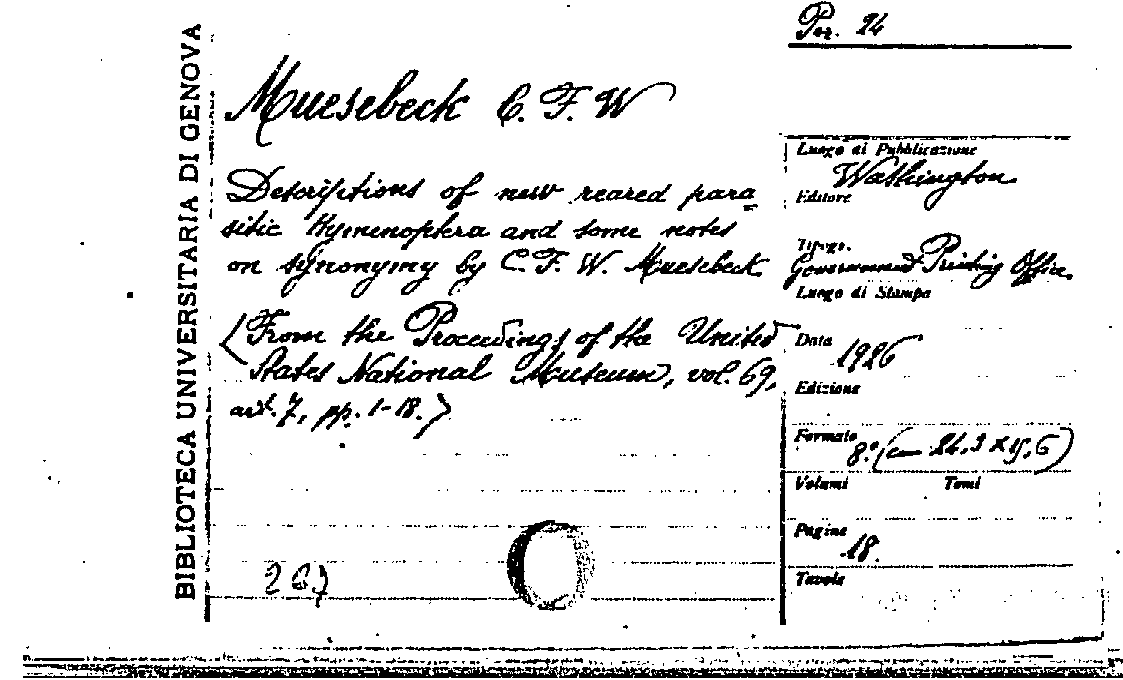 Por. 24
BIBLIOTECA UNIVERSITARIA DI GENOVA
Muesebeck C. F. W
Descriptions of new reared para
sitic Hymenoptera and some notes
on synonymy by C. F. W. Muesebeck
(From the Proceedings of the United
States National Museum, vol. 69,
art. 7, pp. 1-18.)
267
Luogo di Pubblicazione
Washington
Editore
Tipogr.
Government Printing Office
Luogo di Stampa
Data
1926
Edizione
Formato
8.° (cm 24,3 x 15,6)
Volumi Tomi
Pagine
18.
Tavole